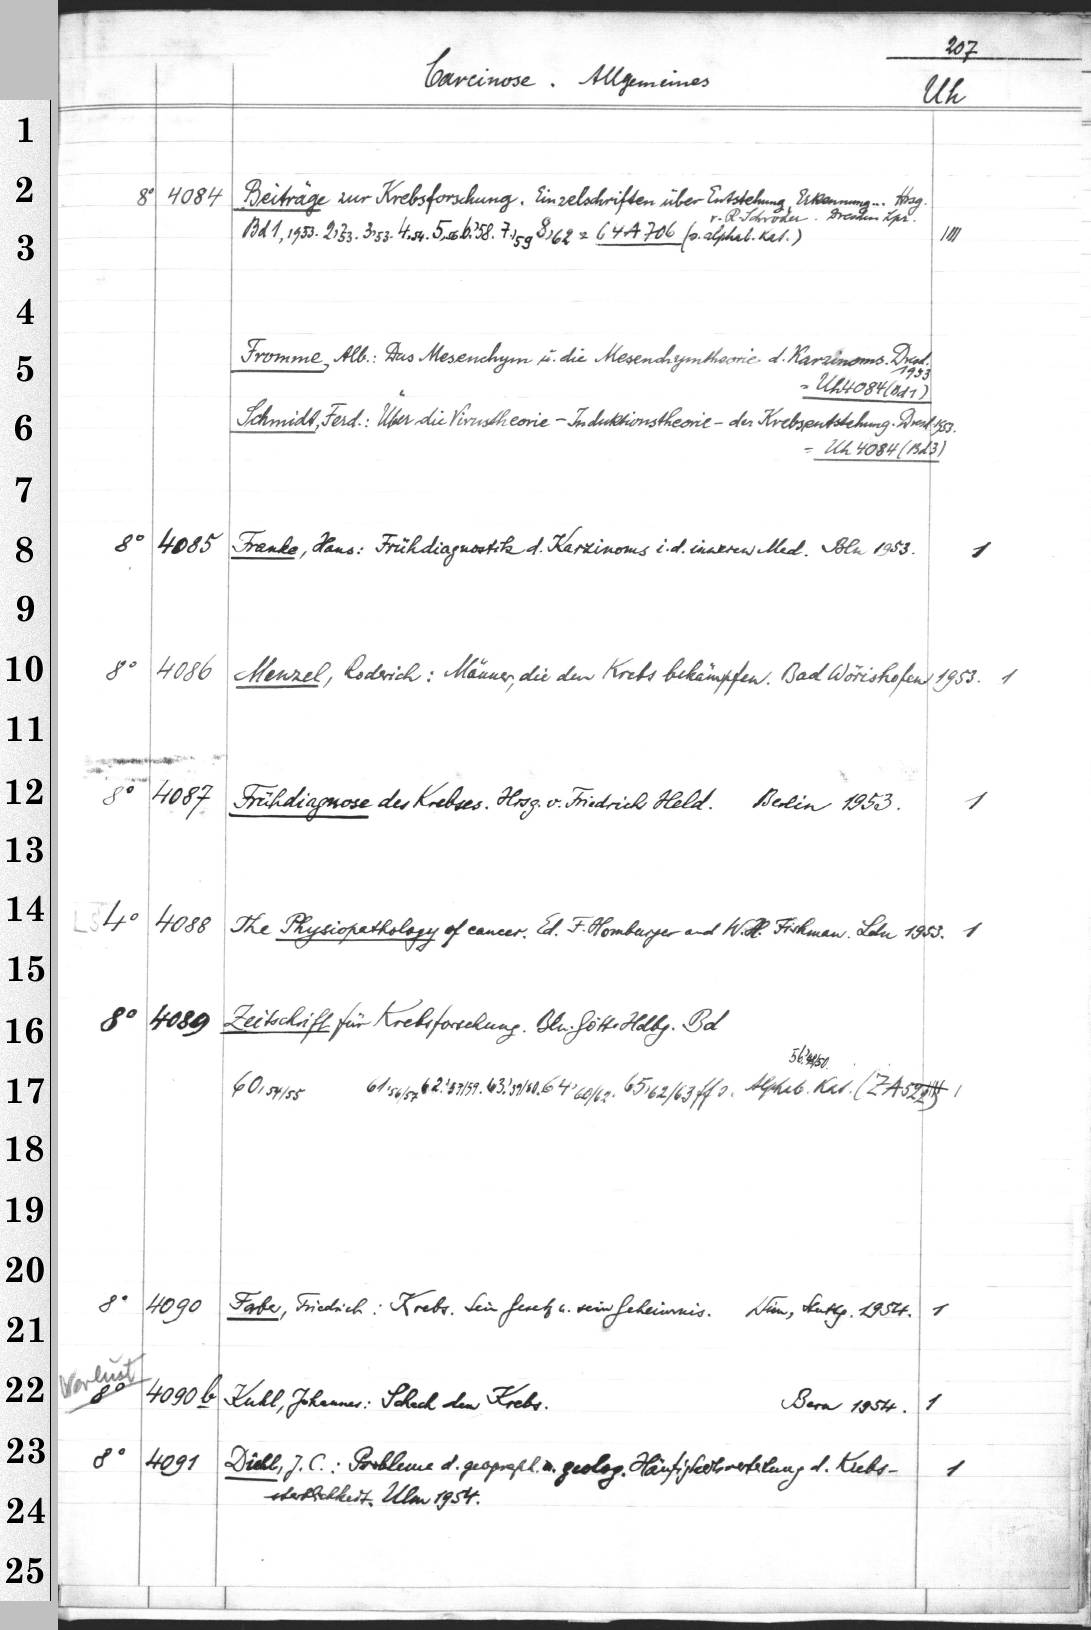 207
Carcinose . Allgemeines
Uh
1
2
8° 4084 Beiträge zur Krebsforschung. Einzelschriften über Entstehung, Erkennung... Hrsg.
v. R. Schröder. Dresden Lpz.
3
Bd 1, 1953. 2,53. 3,53. 4,54. 5,56. 6,58. 7,59 8,62 = 64A706 (s. alphab. Kat.) 1111
4
5
Fromme, Alb.: Das Mesenchym u. die Mesenchymtheorie d. Karzinoms. Dresd. 1953
= Uh4084 (Bd 1)
6
Schmidt, Ferd.: Über die Virustheorie - Induktionstheorie - der Krebsentstehung. Dresd. 1953.
= Uh 4084 (Bd 3)
7
8
8° 4085 Franke, Hans: Frühdiagnostik d. Karzinoms i. d. inneren Med. Bln 1953. 1
9
10
8° 4086 Menzel, Roderich: Männer, die den Krebs bekämpfen. Bad Wörishofen 1953. 1
11
12
8° 4087 Frühdiagnose des Krebses. Hrsg. v. Friedrich Held. Berlin 1953. 1
13
14
4° 4088 The Physiopathology of cancer. Ed. F. Homburger and W. H. Fishman. Ldn 1953. 1
15
16
8° 4089 Zeitschrift für Krebsforschung. Bln. Gött. Hdbg. Bd
17
60,54/55 61,56/57 62,57/59. 63,59/60. 64,60/62. 65,62/63 ff s. Alphab. Kat. (ZA 1
18
19
20
21
8° 4090 Farbe, Friedrich: Krebs. Sein Gesetz u. sein Geheimnis. Stuttg. 1954. 1
22
Verlust
8° 4090 b Kuhl, Johannes: Schach dem Krebs. Bern 1954. 1
23
8° 4091 Diehl, J. C.: Probleme d. geograph. u. geolog. Häufigkeitsverteilung d. Krebs- 1
24
sterblichkeit. Ulm 1954.
25